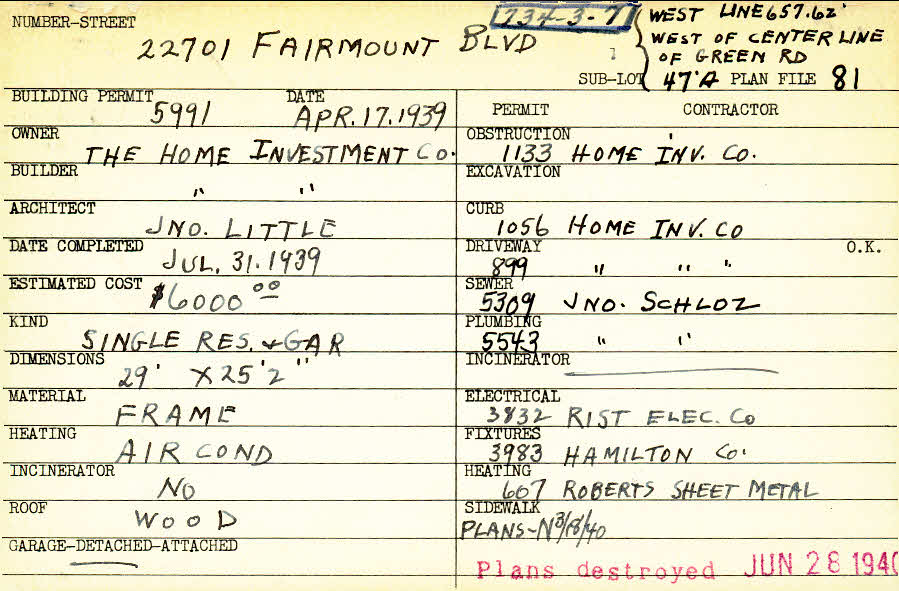 NUMBER-STREET
22701 FAIRMOUNT BLVD
734-3-7
WEST LINE 657.62'
WEST OF CENTER LINE
OF GREEN RD
SUB-LOT 47'A PLAN FILE 81
BUILDING PERMIT 5991 DATE APR.17.1939
OWNER THE HOME INVESTMENT CO.
BUILDER " "
ARCHITECT JNO. LITTLE
DATE COMPLETED JUL. 31. 1939
ESTIMATED COST $6000.00
KIND SINGLE RES. & GAR
DIMENSIONS 29' X 25' 2"
MATERIAL FRAME
HEATING AIR COND
INCINERATOR NO
ROOF WOOD
GARAGE-DETACHED-ATTACHED
PERMIT CONTRACTOR
OBSTRUCTION 1133 HOME INV. CO.
EXCAVATION
CURB 1056 HOME INV. CO
DRIVEWAY 899 " " " O.K.
SEWER 5309 JNO. SCHLOZ
PLUMBING 5543 " "
INCINERATOR
ELECTRICAL 3832 RIST ELEC. Co
FIXTURES 3983 HAMILTON Co.
HEATING 607 ROBERTS SHEET METAL
SIDEWALK
PLANS-N 3/18/40
Plans destroyed JUN 28 1940